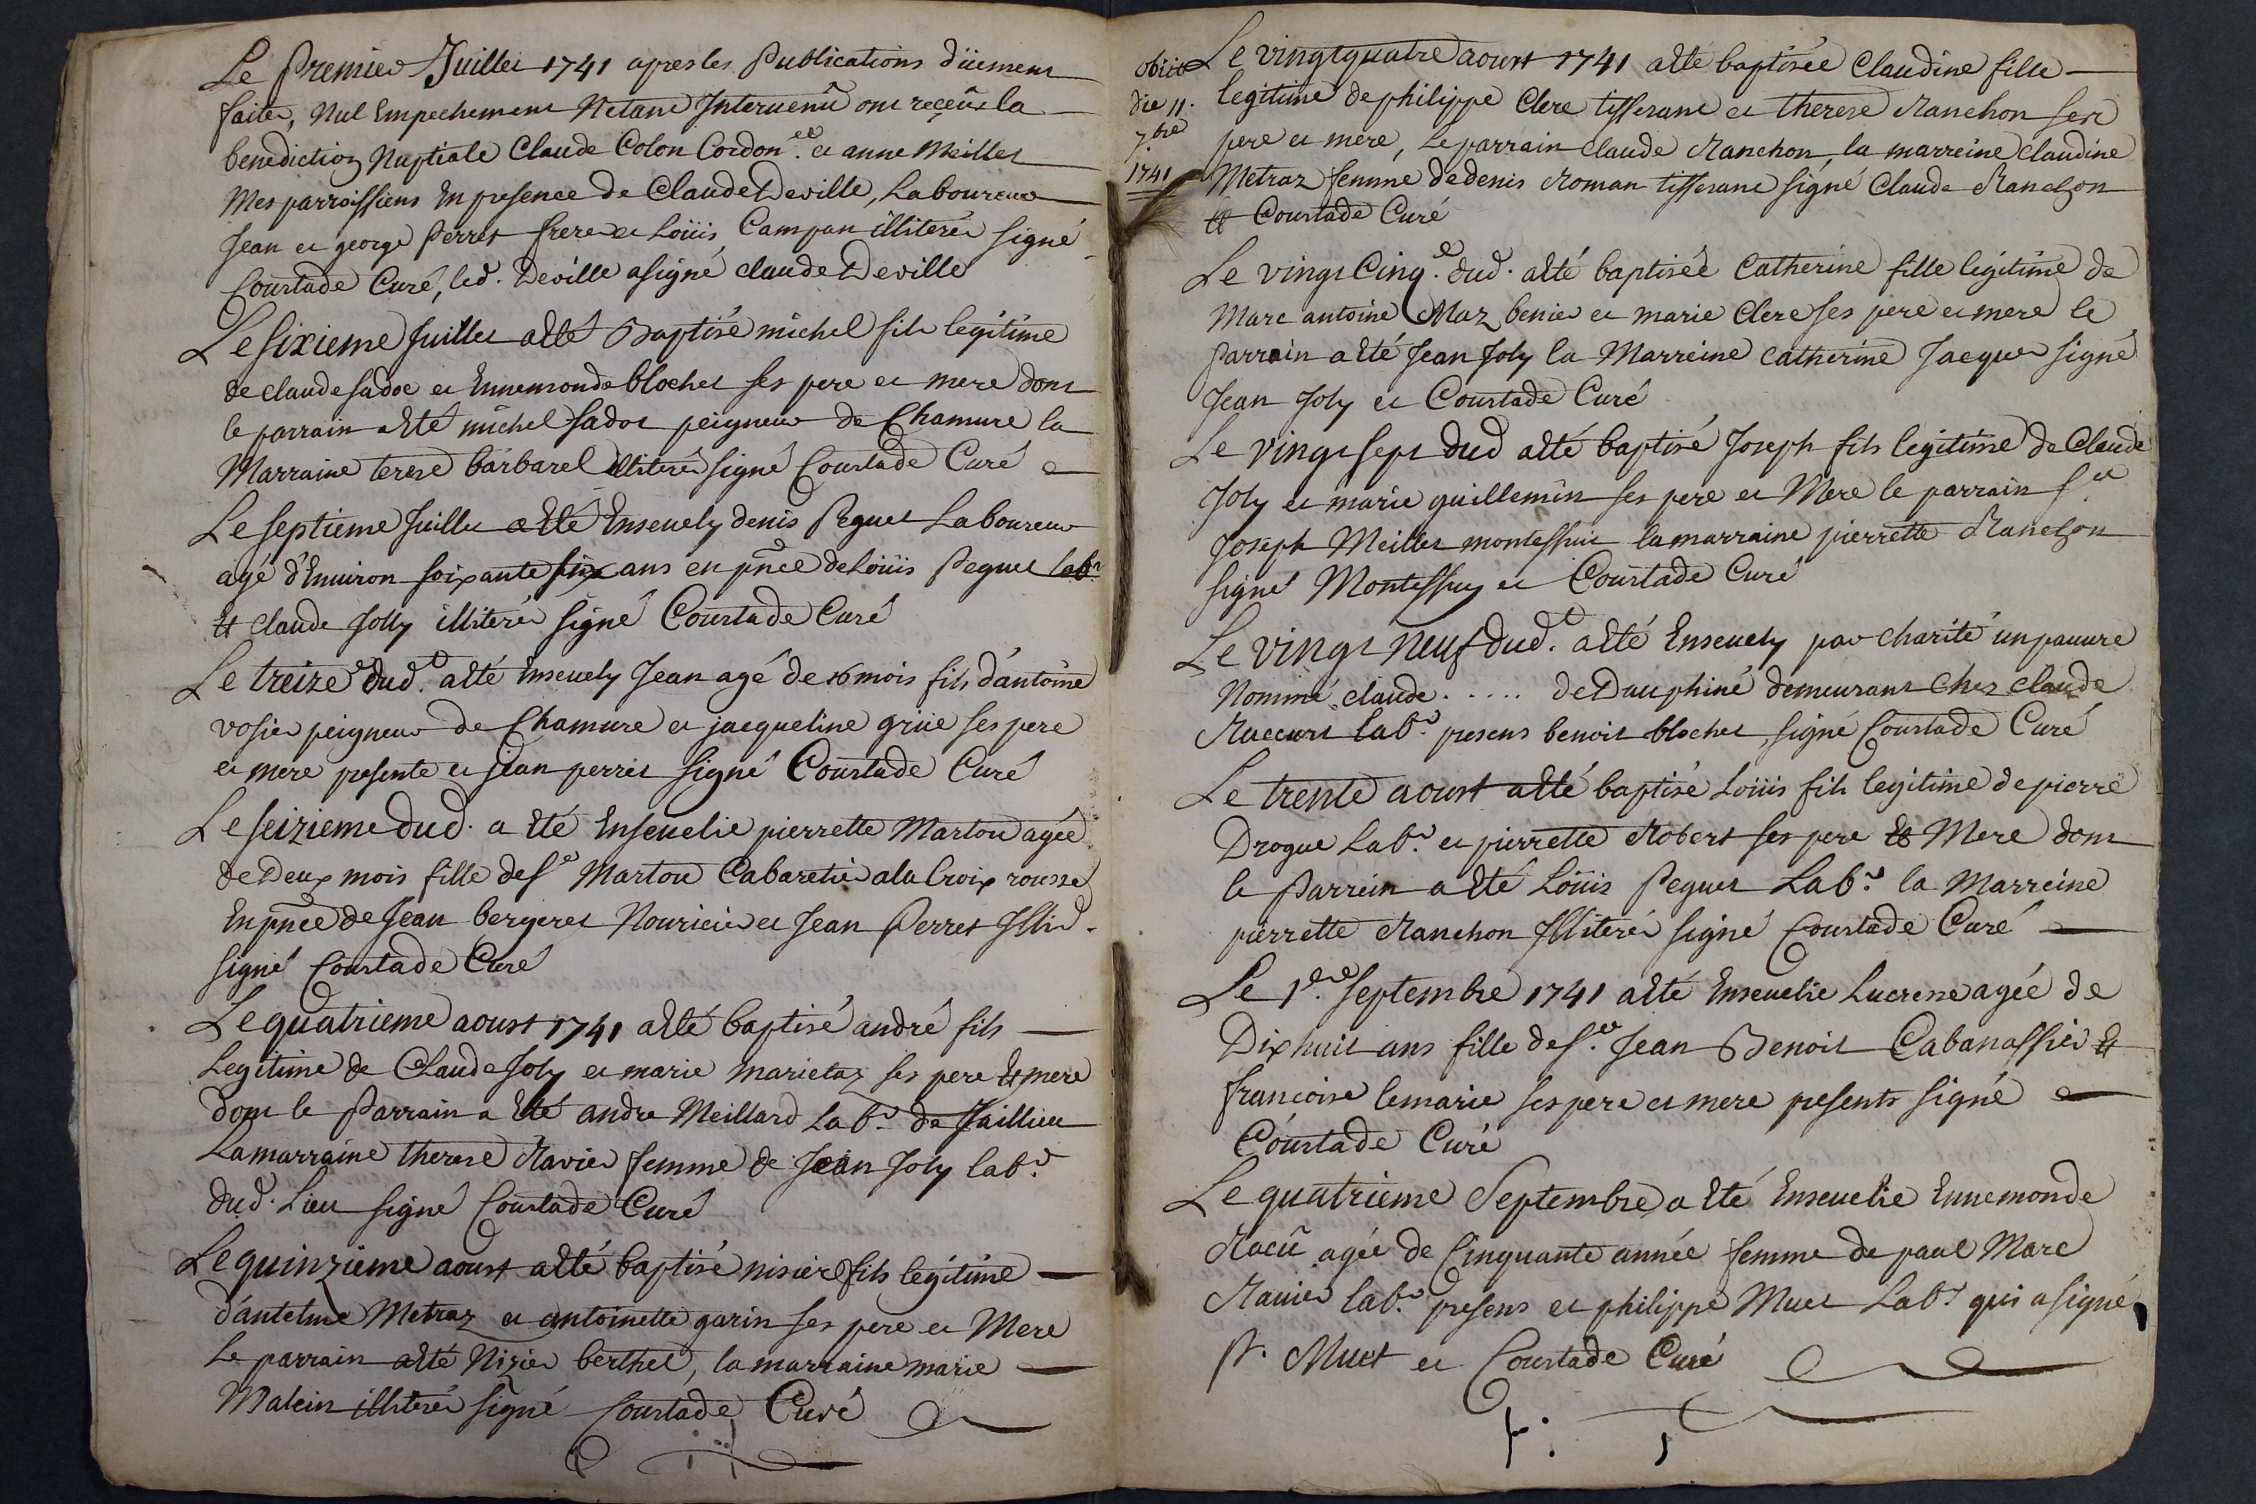 Le Premier Juillet 1741 apres les Publications düement
faites, Nul Empechement Netant Intervenû ont reçeûs la
benediction Nuptiale Claude Colon Cordon.er et anne Meillet
Mes parroissiens En presence de Claude Deville, Laboureur
Jean et george Perret freres et Loüis Campan illiterés signé
Courtade Curé, led. Deville a signé claude Deville
Le sixieme Juillet a Eté Baptisé michel fils legitime
de claude sadot et Ennemonde blochet ses pere et mere dont
le parrain a Eté michel sadot peigneur de Chamure la
Marraine terese barbarel illiterés signé Courtade Curé
Le septieme Juillet a Eté Ensevely denis Peguet Laboureur
agé d'Environ soixante six ans en pñce de Loüis Peguet labr
Et claude Jolly illiterés signé Courtade Curé
Le treize dud. a Eté Ensevely Jean agé de 16 mois fils d'antoine
vosier peigneur de Chamure et jacqueline grüe ses pere
et mere presente et jean perret signé Courtade Curé
Le seizieme dud. a Eté Ensevelie pierrette Martou agée
de Deux mois fille de sr Martou Cabaretier a la Croix rousse
En pñce de Jean bergeret Nouricier et Jean Perret Illir.
signé Courtade Curé
Le quatrieme aoust 1741 a Eté baptisé andré fils
Legitime de Claude Joly et marie marietaz ses pere Et mere
dont le Parrain a Eté andre Meillard Labr. de Jaillieu
La marraine therese Ravier femme de Jean Joly labr.
dud. Lieu signé Courtade Curé
Le quinzieme aoust a Eté baptisé nisier fils legitime
d'antelme Metraz et antoinette garin ses pere et Mere
Le parrain a Eté Nizier berthet, la marraine marie
Malein illiterés signé Courtade Curé
obiit
die 11.
7.bre
1741
Le vingtquatre aoust 1741 a Eté baptisée Claudine fille
legitime de philippe Clere tisserant et therese Ranchon ses
pere et mere, Le parrain claude Ranchon, la marreine claudine
Metraz femme de denis Roman tisserant signé Claude Ranchon
Et Courtade Curé
Le vingt Cinq.e dud. a Eté baptisée Catherine fille legitime de
Marc antoine Maz benier et marie Clere ses pere et mere le
Parrain a Eté Jean Joly la Marreine catherine Jacquer signé
Jean Joly et Courtade Curé
Le vingt sept dud a Eté baptisé Joseph fils legitime de Claude
Joly et marie guillemin ses pere et Mere le parrain sr
Joseph Meillet montessuis la marraine pierrette Ranchon
signé Montessuy et Courtade Curé
Le vingt Neuf dud. a Eté Ensevely par charité un pauvre
Nommé claude ..... de Dauphiné demeurant chez claude
Raccurt Labr. presens benoit blochet, signé Courtade Curé
Le trente aoust a Eté baptisé Loüis fils legitime de pierre
Drogue Labr. et pierrette Robert ses pere Et Mere dont
le Parrein a Eté Loüis Peguet Labr. la Marreine
pierrette Ranchon Illiterés signé Courtade Curé
Le 1.er Septembre 1741 a Eté Ensevelie Lucresse agée de
Dixhuit ans fille de sr. Jean Benoit Cabanassier Et
francoise lemarie ses pere et mere presents signé
Courtade Curé
Le quatrieme Septembre a Eté Ensevelie Ennemonde
agée de Cinquante année femme de paul Marc
Ravier labr. presens et philippe Muet Labr. qui a signé
P. Muet et Courtade Curé